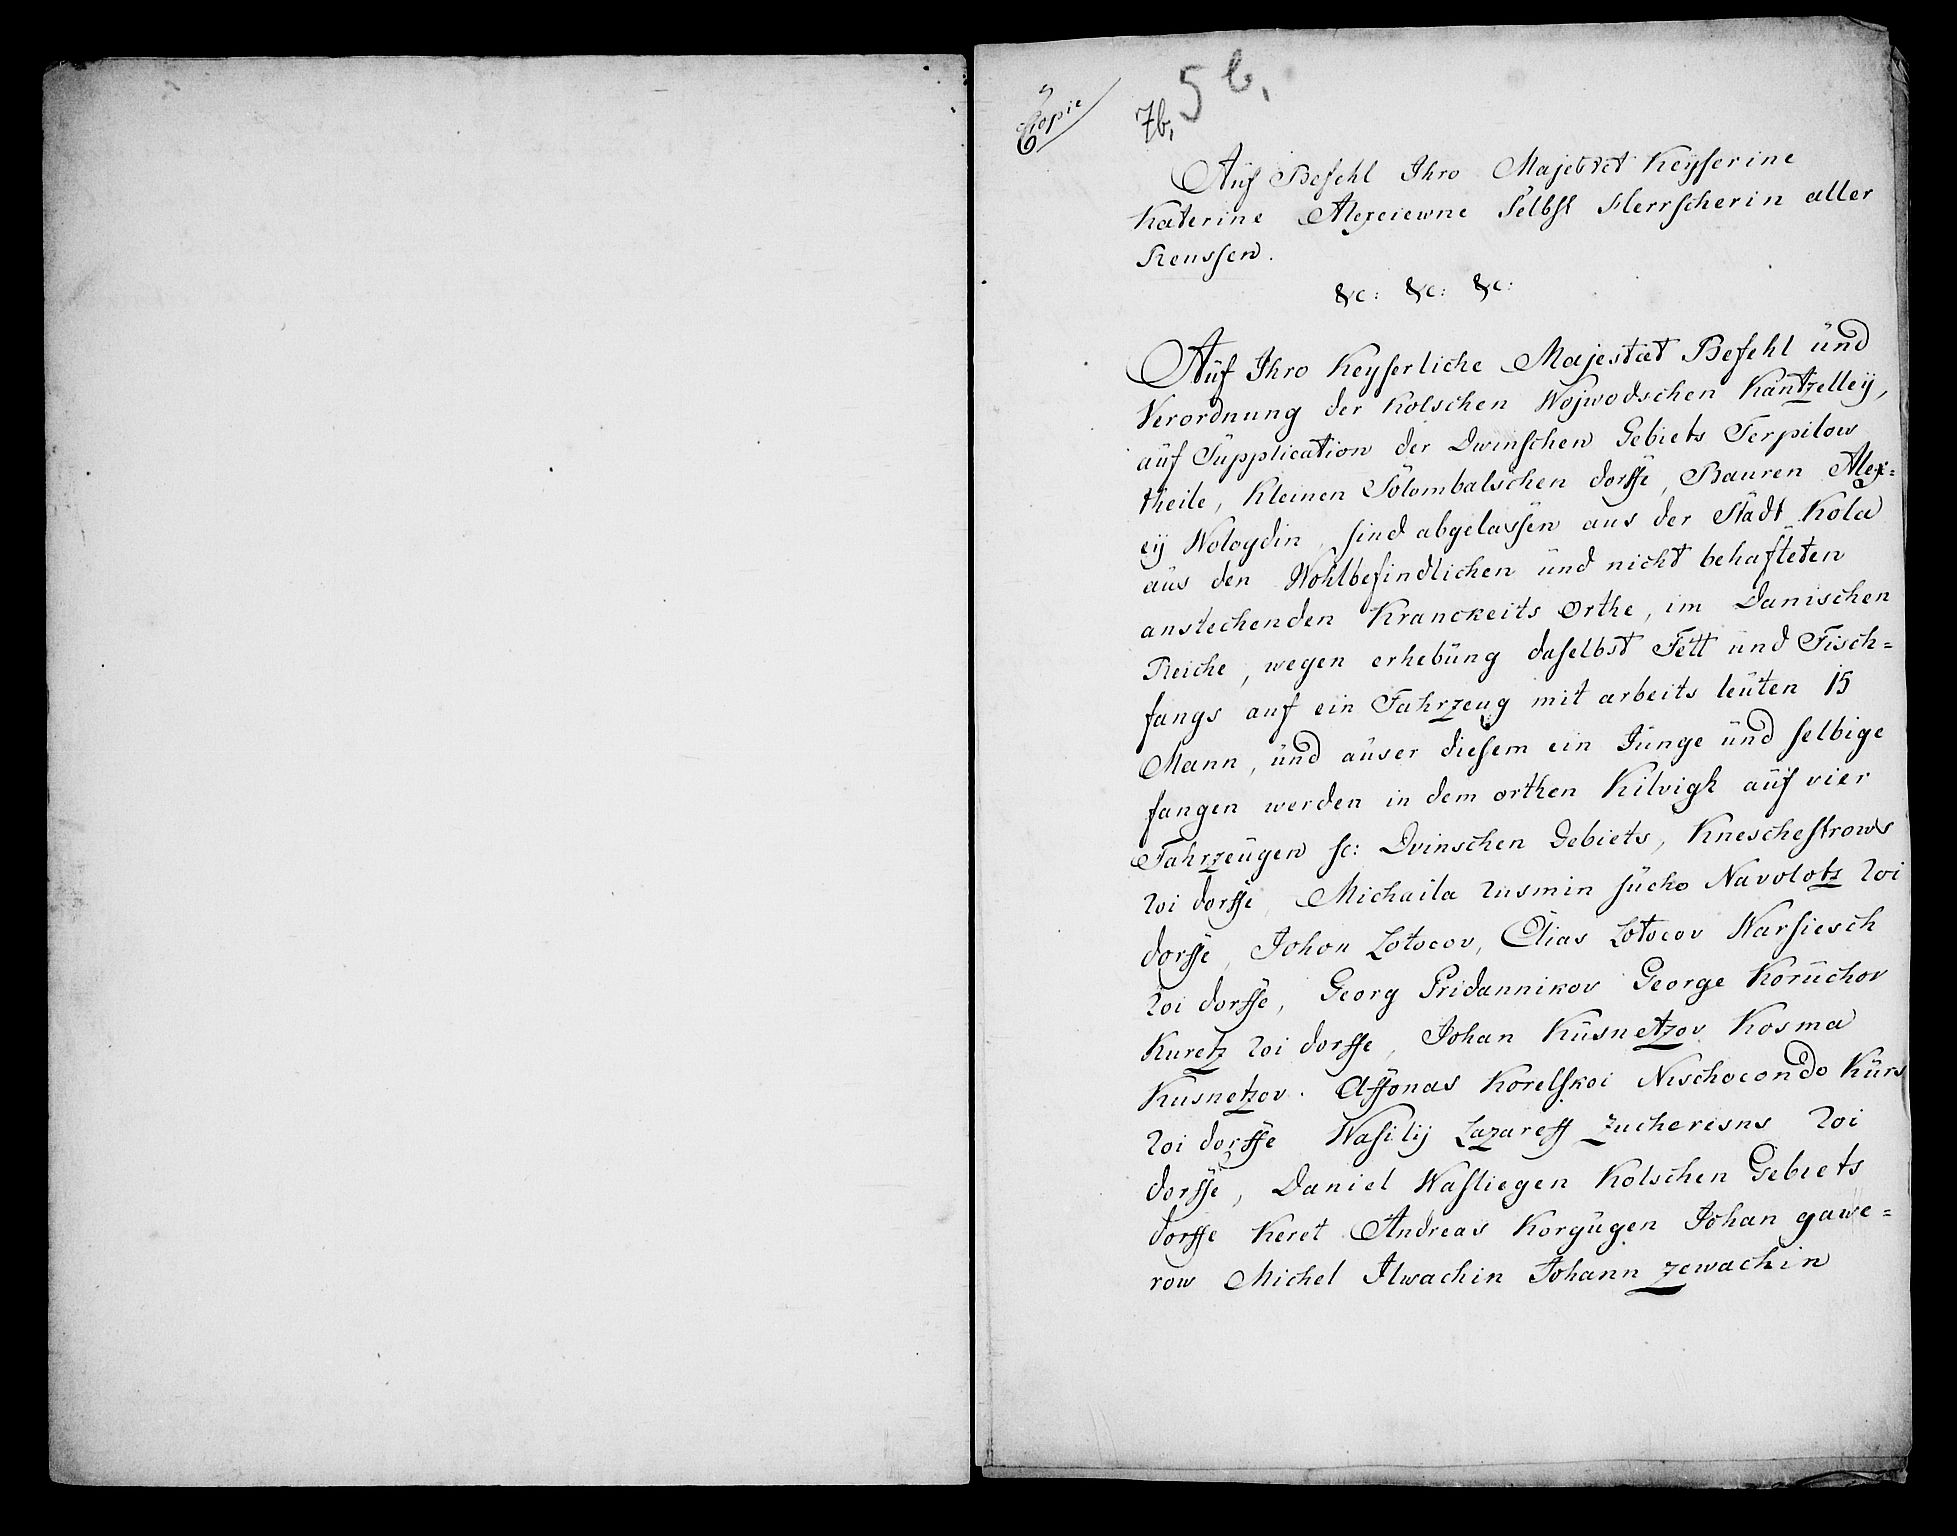 Copie
5 b.
7b,
Auf Befehl Ihro Majestet Keyserine
Katerine Alexeiewne Selbst Herrscherin aller
Reussen.
&c: &c: &c:
Auf Ihro Keyserliche Majestæt Befehl und
Verordnung der Kolschen Wojwodschen Kantzelley,
auf Supplication der Dwinschen Gebiets Terpilow
theile, Kleinen Solombalschen dorffe, Bauren Alex=
eij Wologdin, sind abgelassen aus der Stadt Kola
aus den Wohlbefindlichen und nicht behafteten
anstechenden Kranckeits Orthe, im Danischen
Reiche, wegen erhebung daselbst Fett und Fisch=
fangs auf ein Fahrzeug mit arbeits leuten 15
Mann, und auser diesem ein Junge und selbige
fangen werden in dem orthen Kilvigh auf vier
Fahrzeugen sc: Dvinschen Gebiets, Kneschestrows
koi dorffe, Michaila Kusmin sucho Navolotz koi
dorffe, Johon Lotocov, Elias Lotocov Warsiesch
koi dorffe, Georg Pridannikov George Koruchov
Kuretz koi dorffe, Johan Kusnetzov Kosma
Kusnetzov. Affonas Korelskoi Nischocondo Kurs
koi dorffe Wasilij Lazareff Zucherisns koi
dorffe, Daniel Wasliegen Kolschen Gebiets
dorffe Keret Andreas Korgugen Johan gawe=
row Michel Ilwachin Johann Zewachin